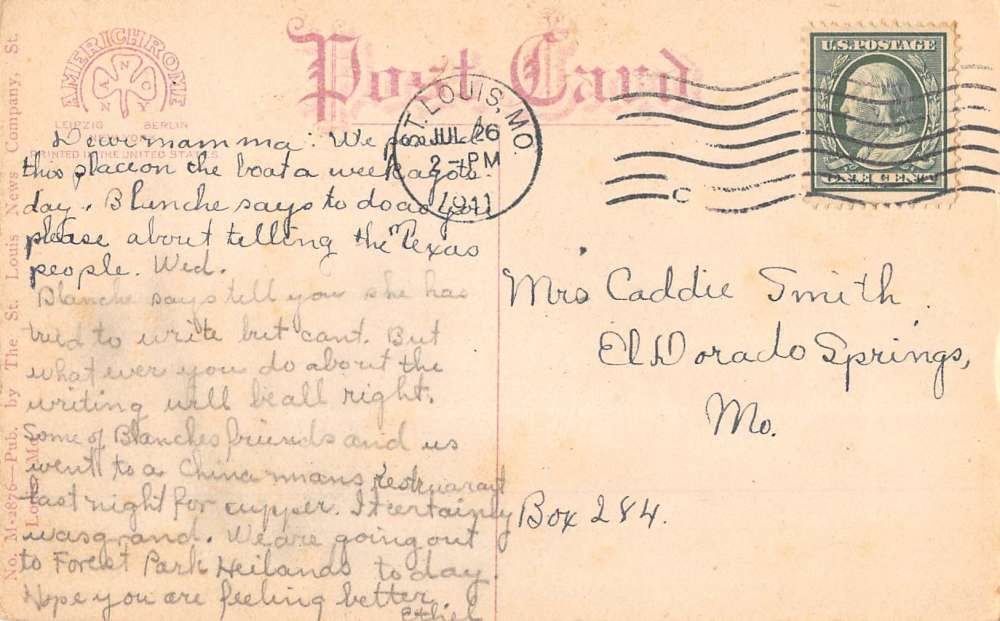 Post Card
AMERICHROME
NANCY
LEIPZIG BERLIN
NEW YORK
PRINTED IN THE UNITED STATES
No. M-2876—Pub. by The St. Louis News Company, St. Louis, Mo.
ST. LOUIS, MO.
JUL 26
2-PM
1911
U.S. POSTAGE
ONE CENT
C
Dear mamma. We passed
this place on the boat a week ago to-
day. Blanche says to do as you
please about telling the Texas
people. Wed.
Blanche says tell you she has
tried to write but cant. But
whatever you do about the
writing will be all right.
Some of Blanches friends and us
went to a China mans restruarant
last night for supper. It certainly
was grand. We are going out
to Forest Park Heilands to day.
Hope you are feeling better.
Ethel
Mrs Caddie Smith.
El Dorado Springs,
Mo.
Box 284.